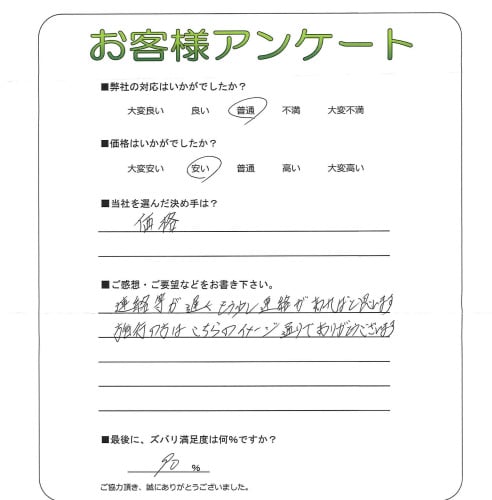 お客様アンケート
■弊社の対応はいかがでしたか?
大変良い 良い 普通 不満 大変不満
■価格はいかがでしたか?
大変安い 安い 普通 高い 大変高い
■当社を選んだ決め手は?
価格
■ご感想・ご要望などをお書き下さい。
連絡等が遅くもう少し連絡があればと思います
施行の方はこちらのイメージ通りでありがとうございます
■最後に、ズバリ満足度は何%ですか?
90 %
ご協力頂き、誠にありがとうございました。